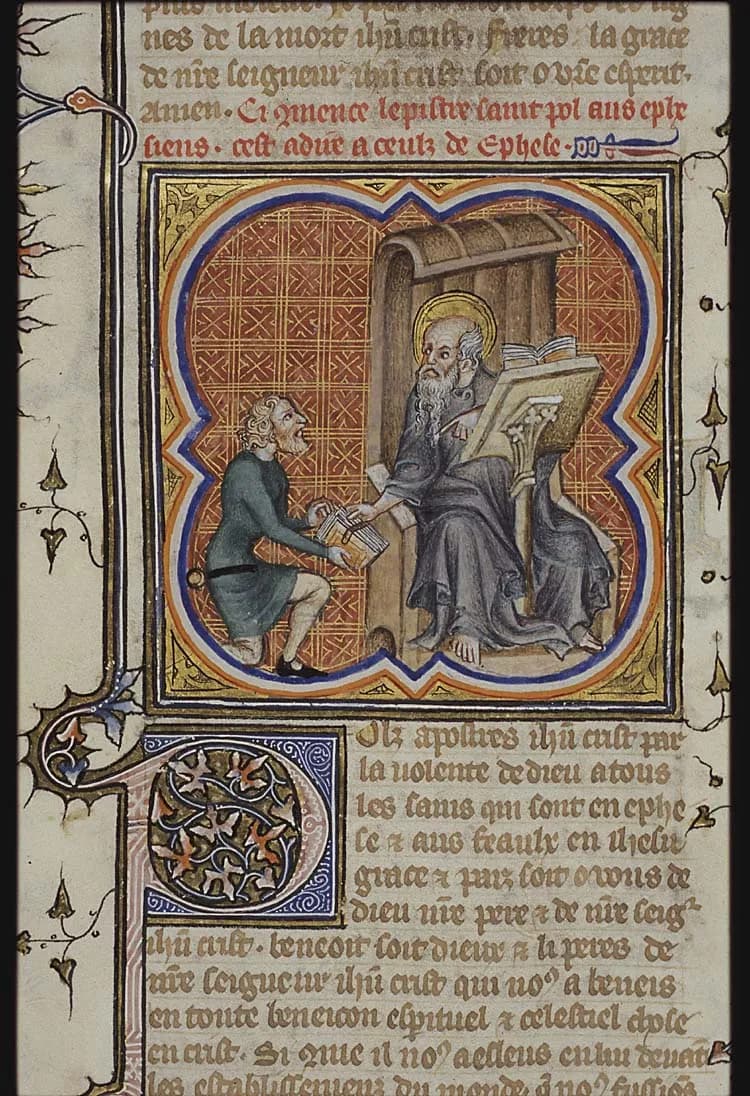 nes de la mort ihũ crist. freres la grace
de nr̃e seigneur ihũ crist soit o vr̃e esperit.
Amen. Ci ꝯmence lepistre saint pol aus ephe
siens. cest adire a ceulz de Ephese.
Polz apostres ihũ crist par
la uolente de dieu a tous
les sains qui sont en ephe
se ⁊ aus feaulx en ihesu
grace ⁊ paiz soit o vous de
dieu nr̃e pere ⁊ de nr̃e seigr
ihũ crist. beneoit soit dieux ⁊ li peres de
nr̃e seigneur ihũ crist qui noꝰ a beneis
en toute beneicon espirituel ⁊ celestiel chose
en crist. Si ꝯme il noꝰ a esleus en lui deuãt
les establissemenz du monde. q̃ noꝰ fussiõs